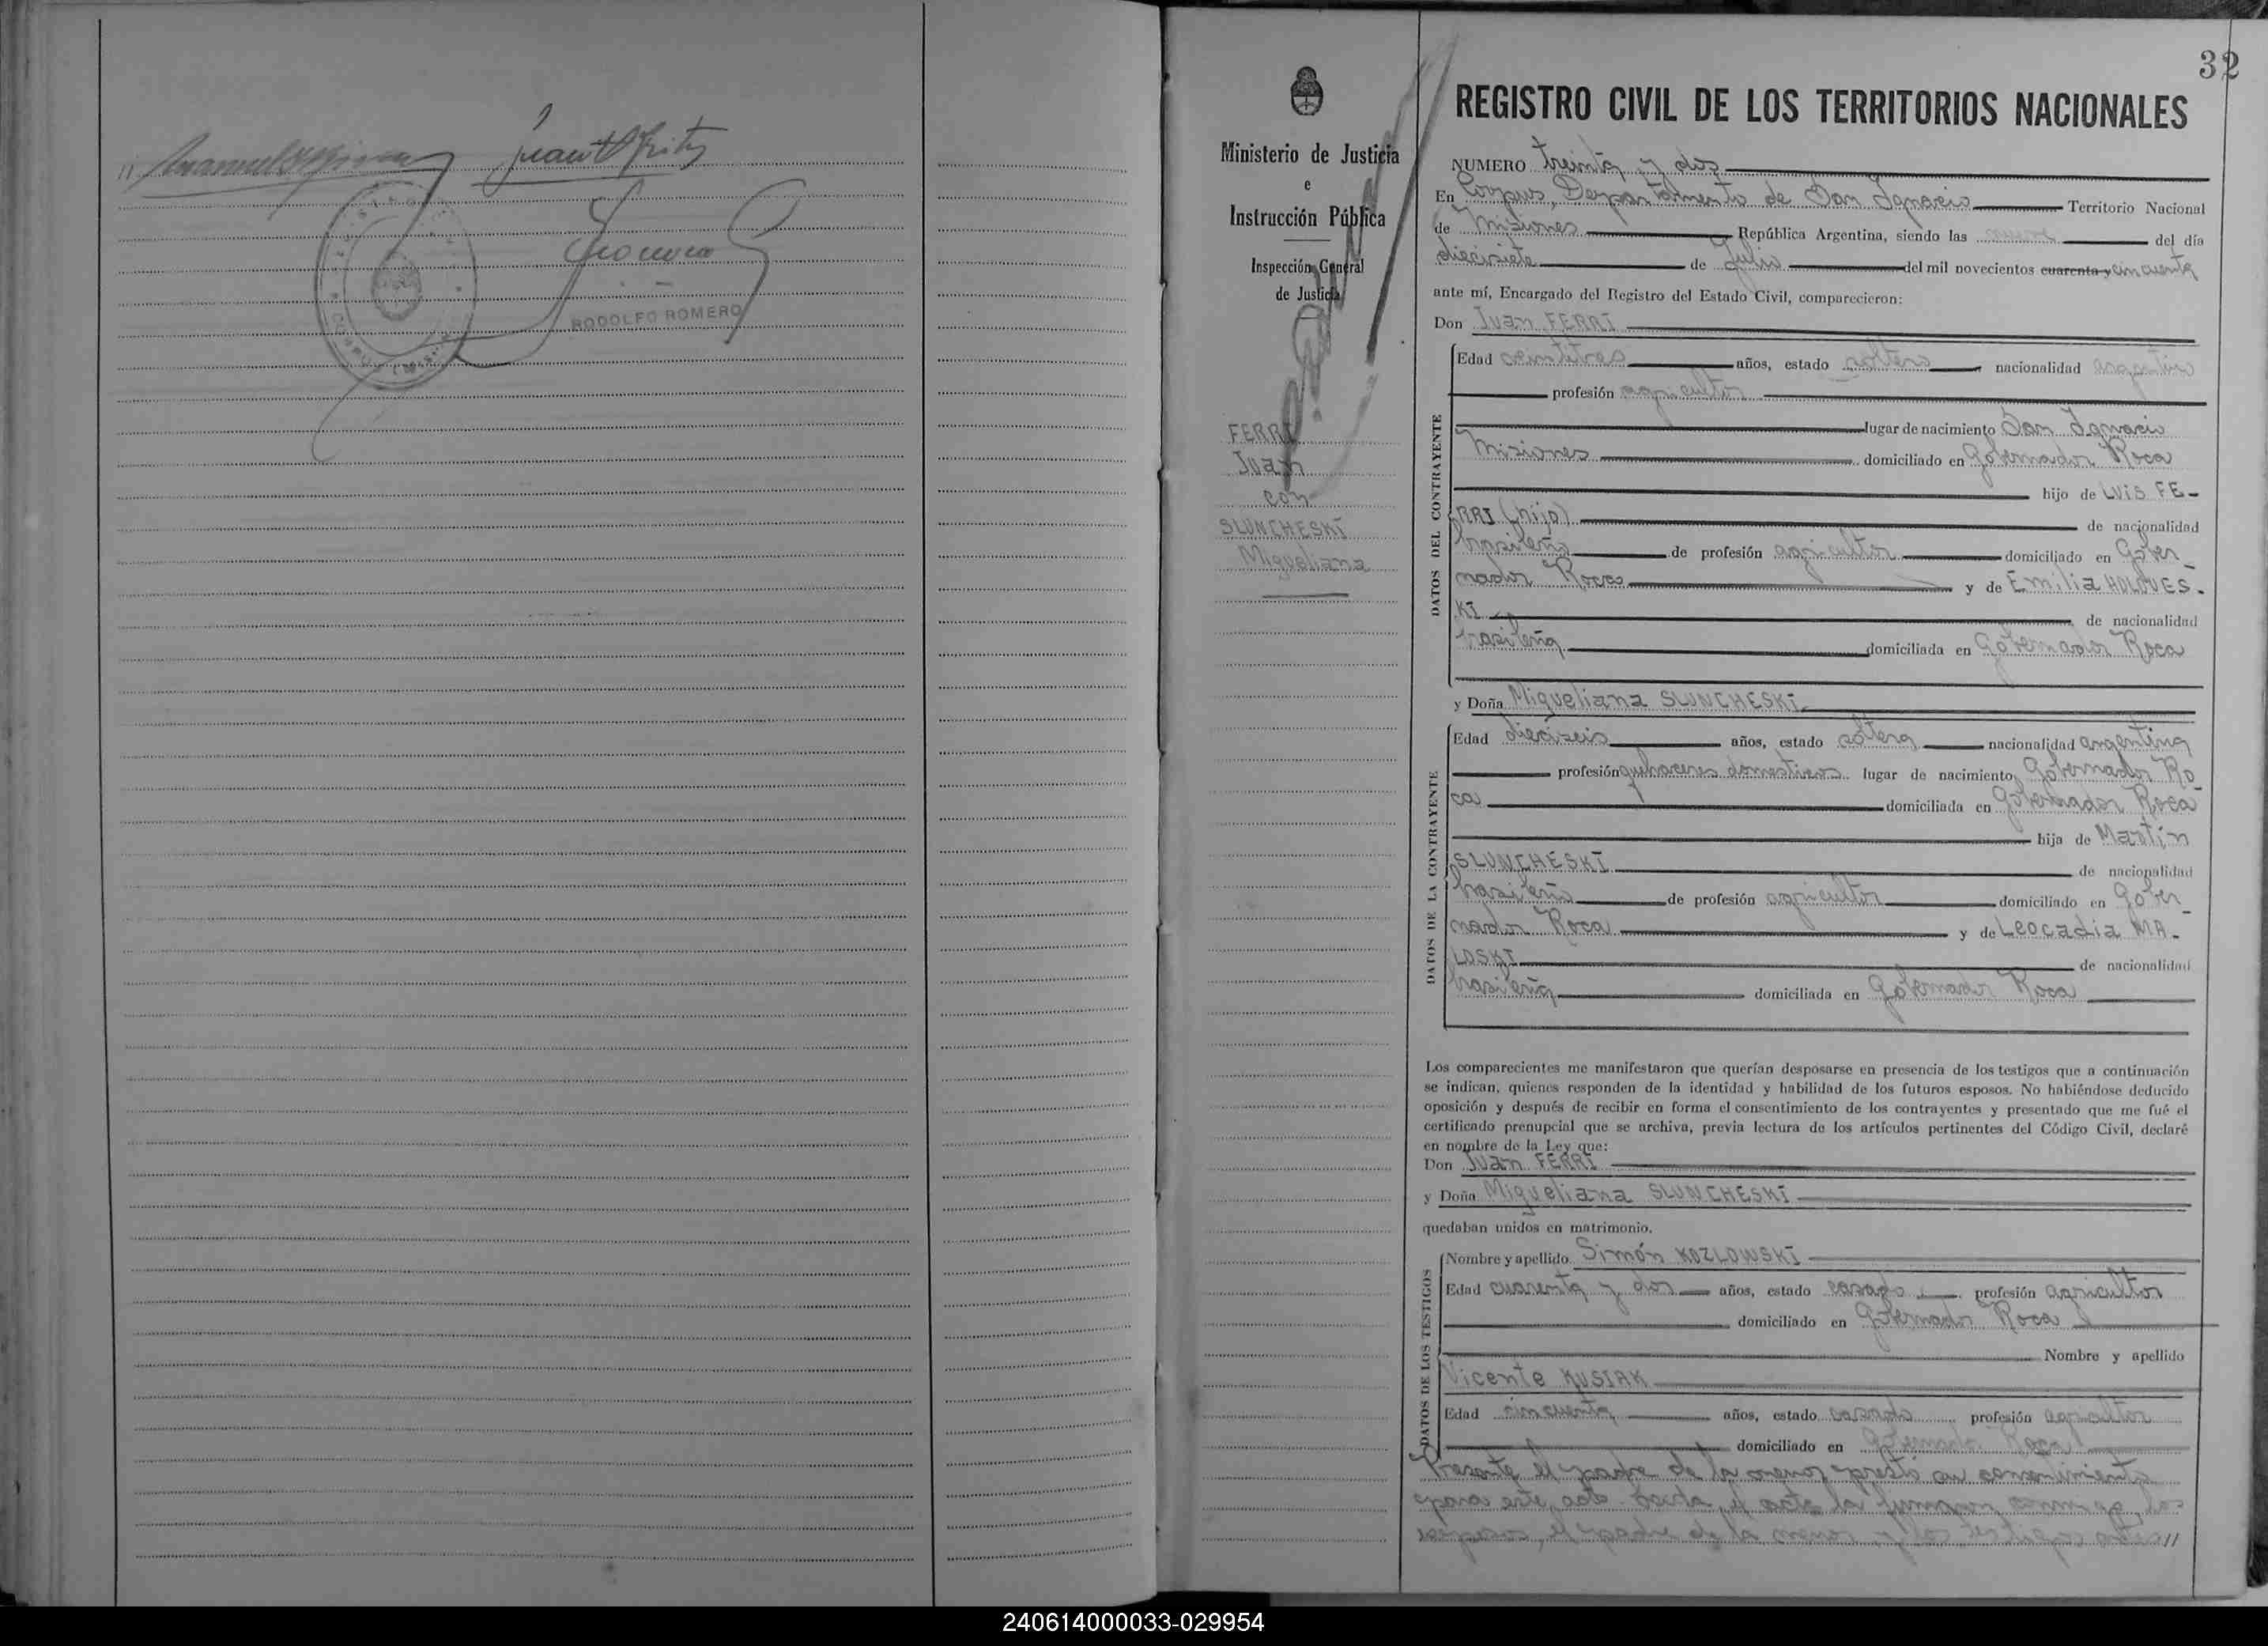 Juan A Fritz
RODOLFO ROMERO
32
Ministerio de Justicia
e
Instrucción Pública
Inspección General
de Justicia
FERRI
Juan
con
SLUNCHESKI
Migueliana
REGISTRO CIVIL DE LOS TERRITORIOS NACIONALES
NUMERO treinta y dos
En Corpus, Departamento de San Ignacio Territorio Nacional
de Misiones República Argentina, siendo las nueve del día
diecisiete de Julio del mil novecientos cuarenta y cincuenta
ante mí, Encargado del Registro del Estado Civil, comparecieron:
Don Juan FERRI
DATOS DEL CONTRAYENTE
Edad veintitres años, estado soltero nacionalidad argentino
profesión agricultor
lugar de nacimiento San Ignacio
Misiones domiciliado en Gobernador Roca
hijo de Luis FE-
RRI (hijo) de nacionalidad
brasileño de profesión agricultor domiciliado en Gober_
nador Roca y de Emilia HOLOVES-
KI de nacionalidad
brasileña domiciliada en Gobernador Roca
y Doña Migueliana SLUNCHESKI
DATOS DE LA CONTRAYENTE
Edad dieciseis años, estado soltera nacionalidad argentina
profesión quehaceres domesticos lugar de nacimiento Gobernador Ro_
ca domiciliada en Gobernador Roca
hija de Martín
SLUNCHESKI de nacionalidad
brasileño de profesión agricultor domiciliado en Gober_
nador Roca y de Leocadia MA-
LOSKI de nacionalidad
brasileña domiciliada en Gobernador Roca
Los comparecientes me manifestaron que querían desposarse en presencia de los testigos que a continuación
se indican, quienes responden de la identidad y habilidad de los futuros esposos. No habiéndose deducido
oposición y después de recibir en forma el consentimiento de los contrayentes y presentado que me fué el
certificado prenupcial que se archiva, previa lectura de los artículos pertinentes del Código Civil, declaré
en nombre de la Ley que:
Don Juan FERRI
y Doña Migueliana SLUNCHESKI
quedaban unidos en matrimonio.
DATOS DE LOS TESTIGOS
Nombre y apellido Simón KOZLOWSKI
Edad cuarenta y dos años, estado casado profesión agricultor
domiciliado en Gobernador Roca
Nombre y apellido
Vicente KUSIAK
Edad cincuenta años, estado casado profesión agricultor
domiciliado en Gobernador Roca
Presente el padre de la menor prestó su consentimiento
para este acto. Leída el acta la firmaron conmigo los
esposos, el padre de la menor y los testigos antes//
240614000033-029954